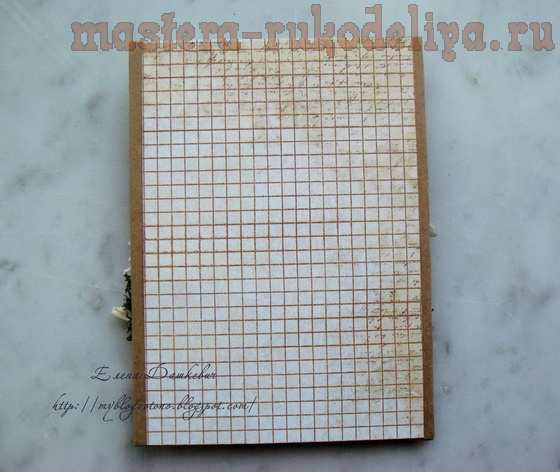 mastera-rukodeliya.ru
Елена Дашкевич
http://myblogotono.blogspot.com/